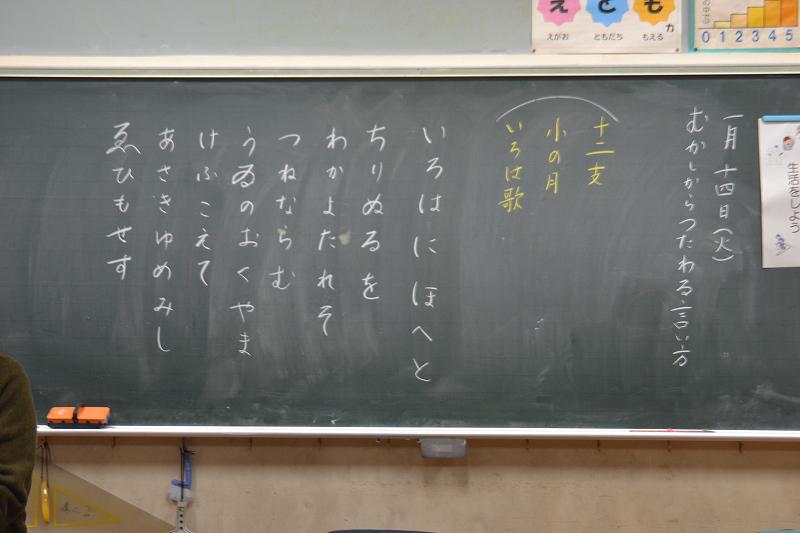 えとも
えがお ともだち もえる カ
0 1 2 3 4 5
生活をしよう
一月 十四日(火)
むかしからつたわる言い方
十二支
小の月
いろは歌
いろはにほへと
ちりぬるを
わかよたれそ
つねならむ
うゐのおくやま
けふこえて
あさきゆめみし
ゑひもせす